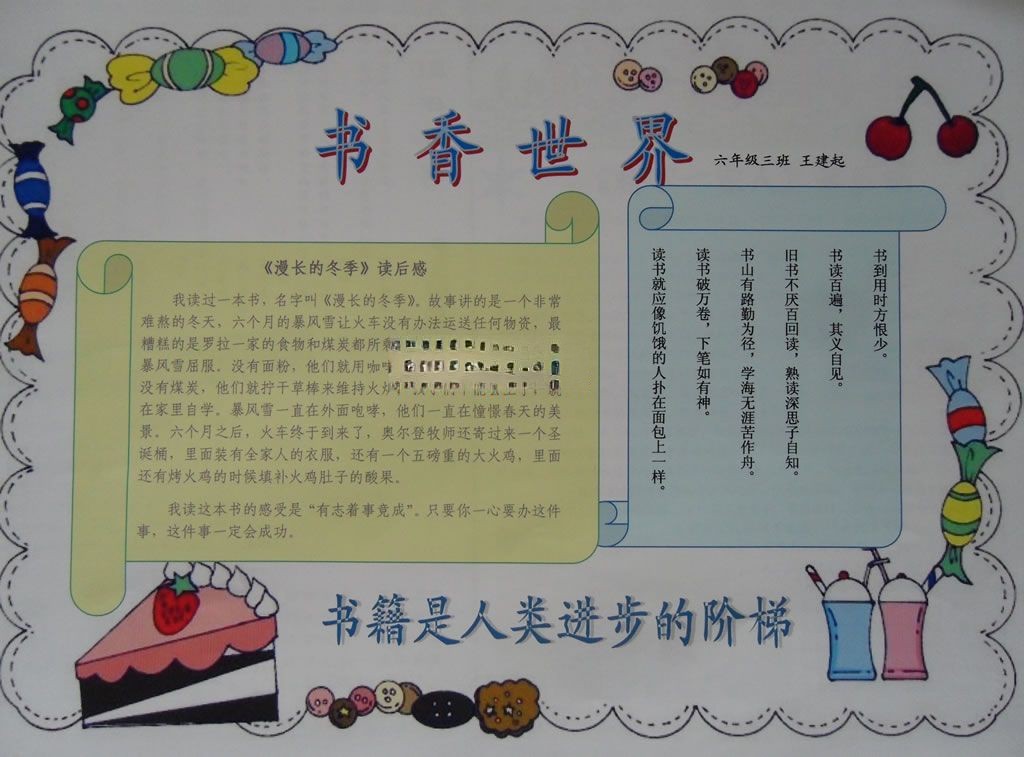 书香世界
六年级三班 王建起
《漫长的冬季》读后感
我读过一本书，名字叫《漫长的冬季》。故事讲的是一个非常
难熬的冬天，六个月的暴风雪让火车没有办法运送任何物资，最
糟糕的是罗拉一家的食物和煤炭都所剩
暴风雪屈服。没有面粉，他们就用咖啡
没有煤炭，他们就拧干草棒来维持火炉 就
在家里自学。暴风雪一直在外面咆哮，他们一直在憧憬春天的美
景。六个月之后，火车终于到来了，奥尔登牧师还寄过来一个圣
诞桶，里面装有全家人的衣服，还有一个五磅重的大火鸡，里面
还有烤火鸡的时候填补火鸡肚子的酸果。
我读这本书的感受是“有志着事竟成”。只要你一心要办这件
事，这件事一定会成功。
书到用时方恨少。
书读百遍，其义自见。
旧书不厌百回读，熟读深思子自知。
书山有路勤为径，学海无涯苦作舟。
读书破万卷，下笔如有神。
读书就应像饥饿的人扑在面包上一样。
书籍是人类进步的阶梯